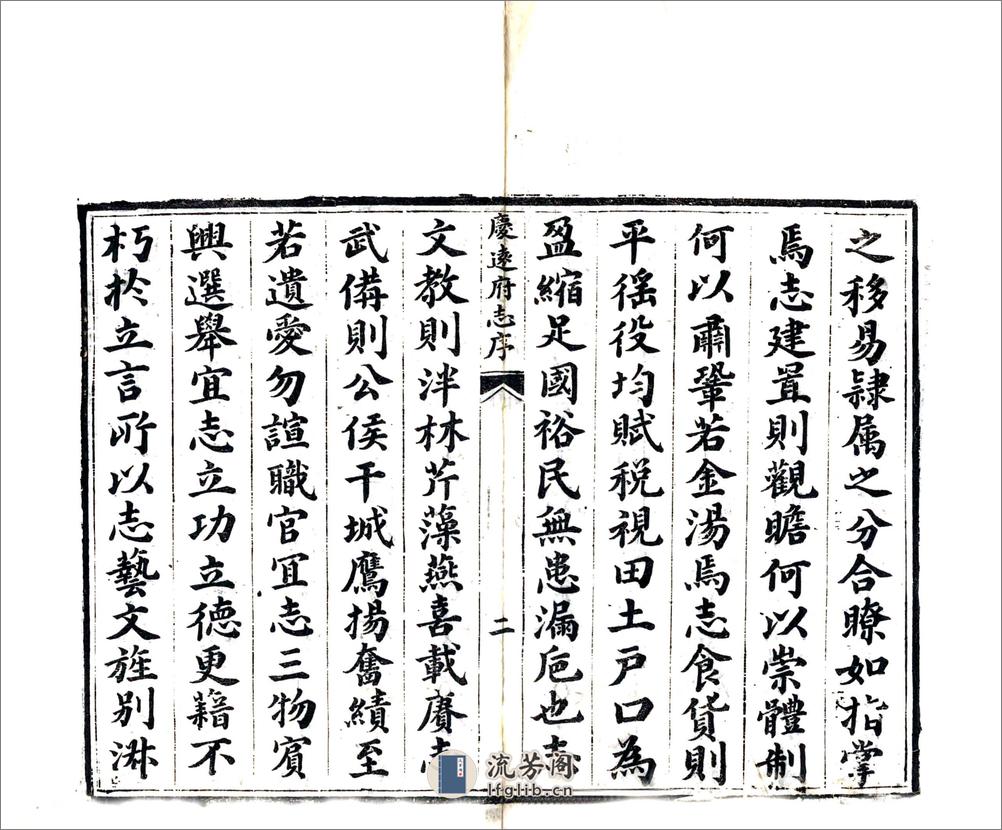 之移易隷属之分合瞭如指掌
焉志建置則觀瞻何以崇體制
何以肅鞏若金湯焉志食貨則
平徭役均賦稅視田土戸口為
盈縮足國裕民無患漏巵也志
慶遠府志序
二
文教則泮林芹藻燕喜載賡志
武備則公侯干城鷹揚奮績至
若遺愛勿諠職官冝志三物賔
興選舉宜志立功立德更籍不
朽於立言所以志藝文旌别淋
流芳阁
lfglib.cn